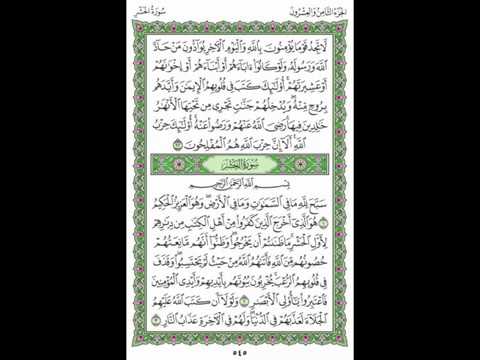 الجزء الثامن والعشرون
سورة الحشر
لَّا تَجِدُ قَوْمًا يُؤْمِنُونَ بِاللَّهِ وَالْيَوْمِ الْآخِرِ يُوَادُّونَ مَنْ حَادَّ
اللَّهَ وَرَسُولَهُ وَلَوْ كَانُوا آبَاءَهُمْ أَوْ أَبْنَاءَهُمْ أَوْ إِخْوَانَهُمْ
أَوْ عَشِيرَتَهُمْ أُولَٰئِكَ كَتَبَ فِي قُلُوبِهِمُ الْإِيمَانَ وَأَيَّدَهُم
بِرُوحٍ مِّنْهُ وَيُدْخِلُهُمْ جَنَّاتٍ تَجْرِي مِن تَحْتِهَا الْأَنْهَارُ
خَالِدِينَ فِيهَا رَضِيَ اللَّهُ عَنْهُمْ وَرَضُوا عَنْهُ أُولَٰئِكَ حِزْبُ
اللَّهِ أَلَا إِنَّ حِزْبَ اللَّهِ هُمُ الْمُفْلِحُونَ ٢٢
سورة الحشر
بِسْمِ اللَّهِ الرَّحْمَٰنِ الرَّحِيمِ
سَبَّحَ لِلَّهِ مَا فِي السَّمَاوَاتِ وَمَا فِي الْأَرْضِ وَهُوَ الْعَزِيزُ الْحَكِيمُ
١ هُوَ الَّذِي أَخْرَجَ الَّذِينَ كَفَرُوا مِنْ أَهْلِ الْكِتَابِ مِن دِيَارِهِمْ
لِأَوَّلِ الْحَشْرِ مَا ظَنَنتُمْ أَن يَخْرُجُوا وَظَنُّوا أَنَّهُم مَّانِعَتُهُمْ
حُصُونُهُم مِّنَ اللَّهِ فَأَتَاهُمُ اللَّهُ مِنْ حَيْثُ لَمْ يَحْتَسِبُوا وَقَذَفَ
فِي قُلُوبِهِمُ الرُّعْبَ يُخْرِبُونَ بُيُوتَهُم بِأَيْدِيهِمْ وَأَيْدِي الْمُؤْمِنِينَ
فَاعْتَبِرُوا يَا أُولِي الْأَبْصَارِ ٢ وَلَوْلَا أَن كَتَبَ اللَّهُ عَلَيْهِمُ
الْجَلَاءَ لَعَذَّبَهُمْ فِي الدُّنْيَا وَلَهُمْ فِي الْآخِرَةِ عَذَابُ النَّارِ ٣
٥٤٥